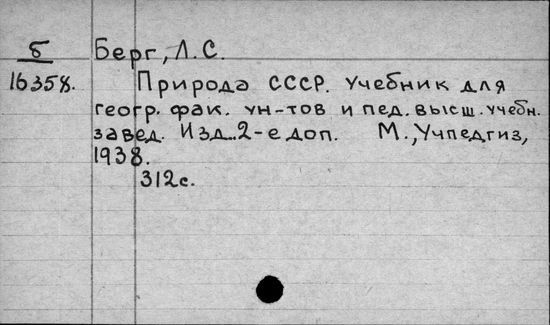 б Берг, Л. С.
16358.
Природа СССР. Учебник для
геогр. фак. ун-тов и пед. высш. учебн.
завед. Изд. 2-е доп. М., Учпедгиз,
1938.
312с.